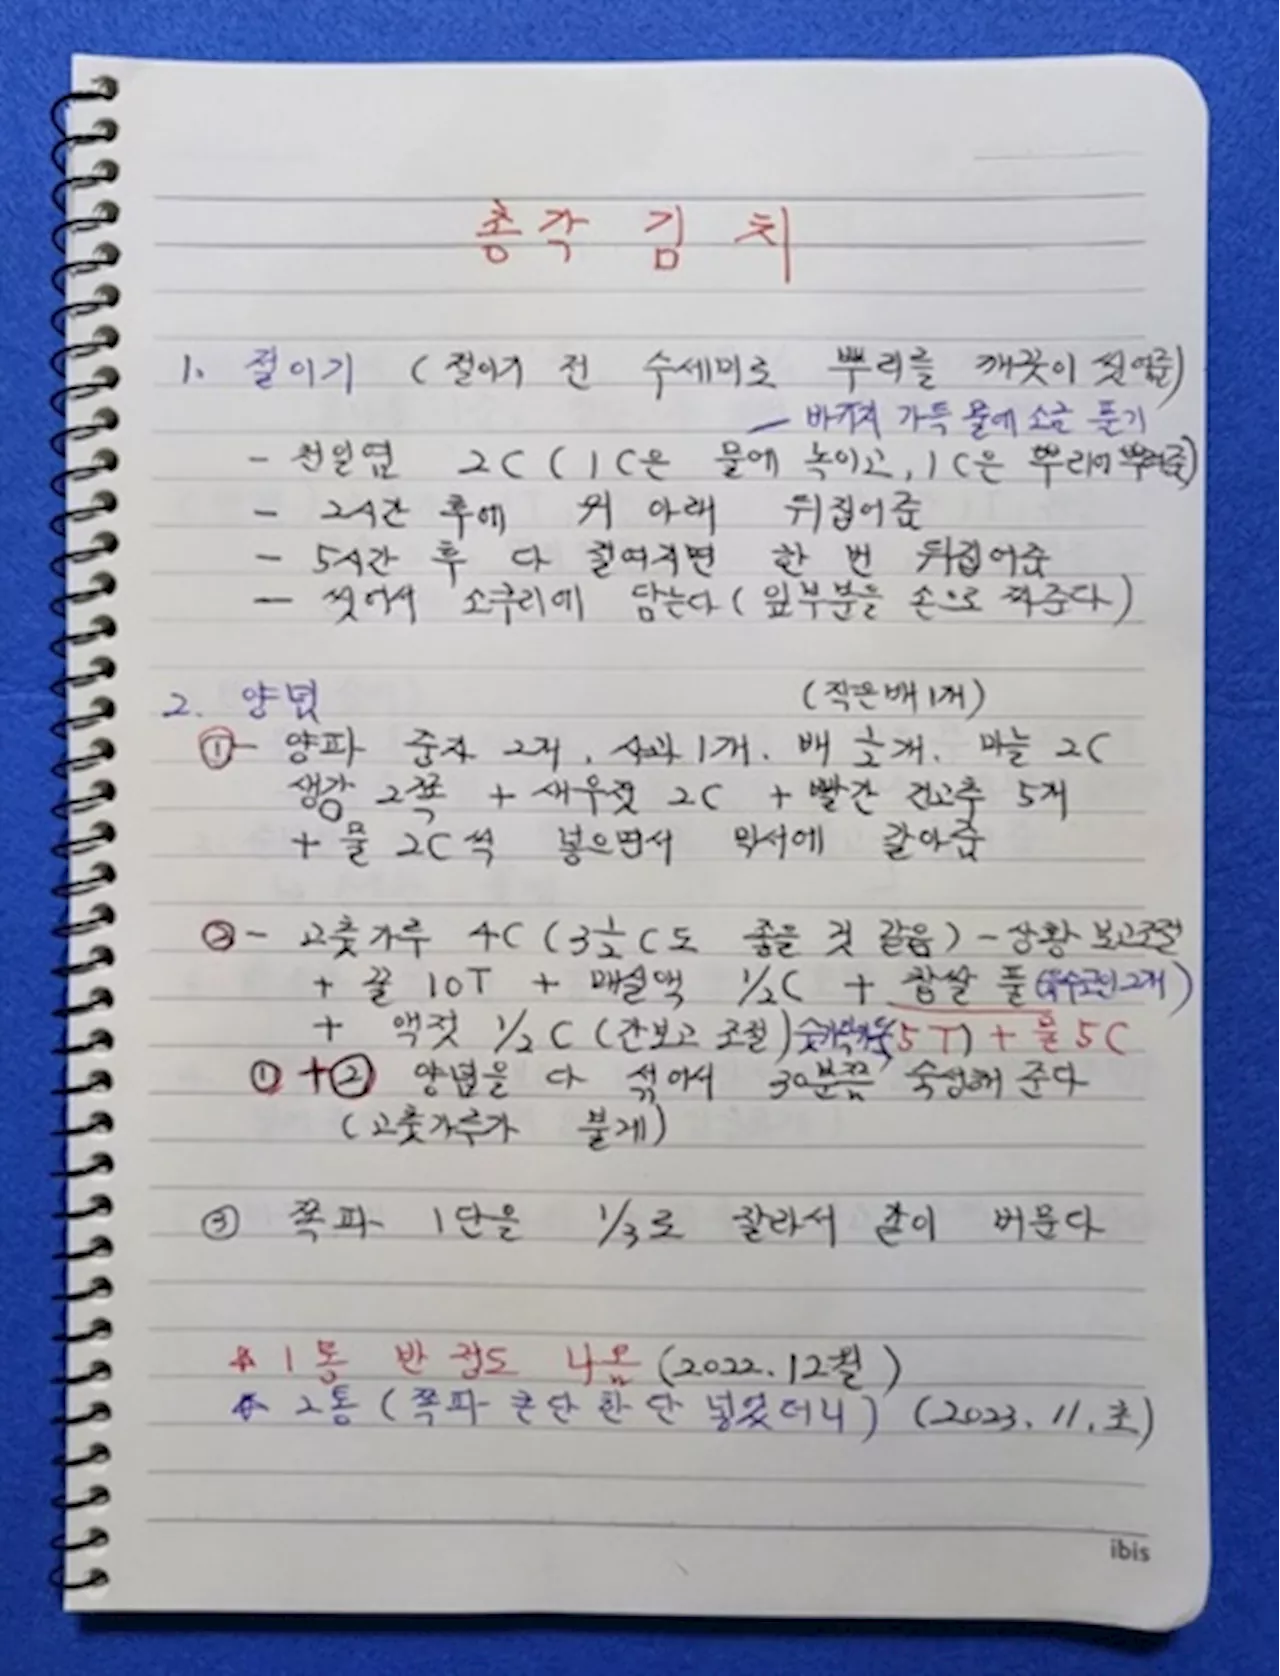 총각 김치
1. 절이기 (절이기 전 수세미로 뿌리를 깨끗이 씻어줌)
- 바가지 가득 물에 소금 풀기
- 천일염 2C (1C은 물에 녹이고, 1C은 뿌리에 뿌려줌)
- 2시간 후에 위 아래 뒤집어줌
- 5시간 후 다 절여지면 한 번 뒤집어줌
- 씻어서 소쿠리에 담는다 (잎부분을 손으로 짜준다)
2. 양념 (작은배 1개)
①- 양파 중자 2개, 사과 1개. 배 1/2개. 마늘 2C
생강 2쪽 + 새우젓 2C + 빨간 건고추 5개
+ 물 2C씩 넣으면서 믹서에 갈아줌
②- 고춧가루 4C (3 1/2 C도 좋을 것 같음) - 상황 보고 조절
+ 꿀 10T + 매실액 1/2C + 찹쌀 풀 (2개)
+ 액젓 1/2 C (간보고 조절) (5T) + 물 5C
① + ② 양념을 다 섞어서 30분쯤 숙성해 준다
(고춧가루가 불게)
③ 쪽파 1단을 1/3로 잘라서 같이 버무다
* 1통 반 정도 나옴 (2022.12월)
* 2통 (쪽파 큰단 한 단 넣었더니) (2023. 11. 초)
ibis